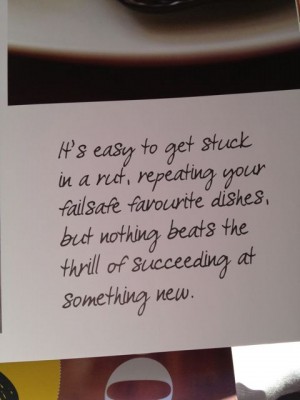 It's easy to get stuck
in a rut, repeating your
failsafe favourite dishes,
but nothing beats the
thrill of succeeding at
something new.